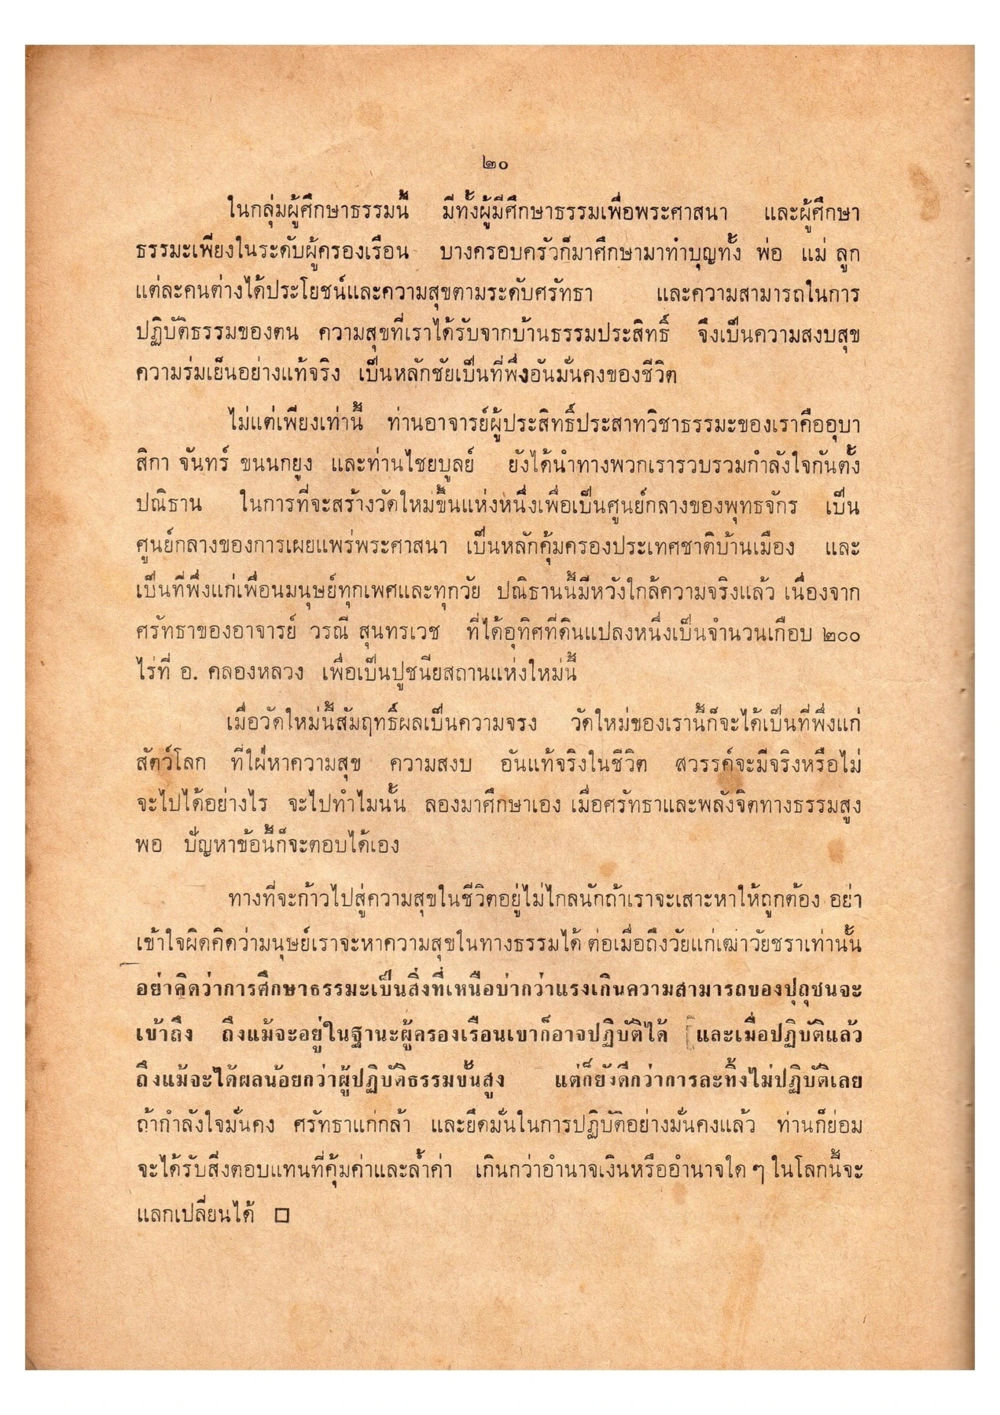 ๒๐
ในกลุ่มผู้ศึกษาธรรมนี้ มีทั้งผู้มีศึกษาธรรมเพื่อพระศาสนา และผู้ศึกษา
ธรรมะเพียงในระดับผู้ครองเรือน บางครอบครัวก็มาศึกษามาทำบุญทั้ง พ่อ แม่ ลูก
แต่ละคนต่างได้ประโยชน์และความสุขตามระดับศรัทธา และความสามารถในการ
ปฏิบัติธรรมของตน ความสุขที่เราได้รับจากบ้านธรรมประสิทธิ์ จึงเป็นความสงบสุข
ความร่มเย็นอย่างแท้จริง เป็นหลักชัยเป็นที่พึ่งอันมั่นคงของชีวิต
ไม่แต่เพียงเท่านี้ ท่านอาจารย์ผู้ประสิทธิ์ประสาทวิชาธรรมะของเราคืออุบา
สิกา จันทร์ ขนนกยูง และท่านไชยบูลย์ ยังได้นำทางพวกเรารวบรวมกำลังใจกันตั้ง
ปณิธาน ในการที่จะสร้างวัดใหม่ขึ้นแห่งหนึ่งเพื่อเป็นศูนย์กลางของพุทธจักร เป็น
ศูนย์กลางของการเผยแพร่พระศาสนา เป็นหลักคุ้มครองประเทศชาติบ้านเมือง และ
เป็นที่พึ่งแก่เพื่อนมนุษย์ทุกเพศและทุกวัย ปณิธานนี้มีหวังใกล้ความจริงแล้ว เนื่องจาก
ศรัทธาของอาจารย์ วรณี สุนทรเวช ที่ได้อุทิศที่ดินแปลงหนึ่งเป็นจำนวนเกือบ ๒๐๐
ไร่ที่ อ. คลองหลวง เพื่อเป็นปูชนียสถานแห่งใหม่นี้
เมื่อวัดใหม่นี้สัมฤทธิ์ผลเป็นความจรง วัดใหม่ของเรานี้ก็จะได้เป็นที่พึ่งแก่
สัตว์โลก ที่ใฝ่หาความสุข ความสงบ อันแท้จริงในชีวิต สวรรค์จะมีจริงหรือไม่
จะไปได้อย่างไร จะไปทำไมนั้น ลองมาศึกษาเอง เมื่อศรัทธาและพลังจิตทางธรรมสูง
พอ ปัญหาข้อนี้ก็จะตอบได้เอง
ทางที่จะก้าวไปสู่ความสุขในชีวิตอยู่ไม่ไกลนักถ้าเราจะเสาะหาให้ถูกต้อง อย่า
เข้าใจผิดคิดว่ามนุษย์เราจะหาความสุขในทางธรรมได้ ต่อเมื่อถึงวัยแก่เฒ่าวัยชราเท่านั้น
อย่าคิดว่าการศึกษาธรรมะเป็นสิ่งที่เหนือบ่ากว่าแรงเกินความสามารถของปุถุชนจะ
เข้าถึง ถึงแม้จะอยู่ในฐานะผู้ครองเรือนเขาก็อาจปฏิบัติได้ และเมื่อปฏิบัติแล้ว
ถึงแม้จะได้ผลน้อยกว่าผู้ปฏิบัติธรรมขั้นสูง แต่ก็ยังดีกว่าการละทิ้งไม่ปฏิบัติเลย
ถ้ากำลังใจมั่นคง ศรัทธาแก่กล้า และยึดมั่นในการปฏิบัติอย่างมั่นคงแล้ว ท่านก็ย่อม
จะได้รับสิ่งตอบแทนที่คุ้มค่าและล้ำค่า เกินกว่าอำนาจเงินหรืออำนาจใด ๆ ในโลกนี้จะ
แลกเปลี่ยนได้ □